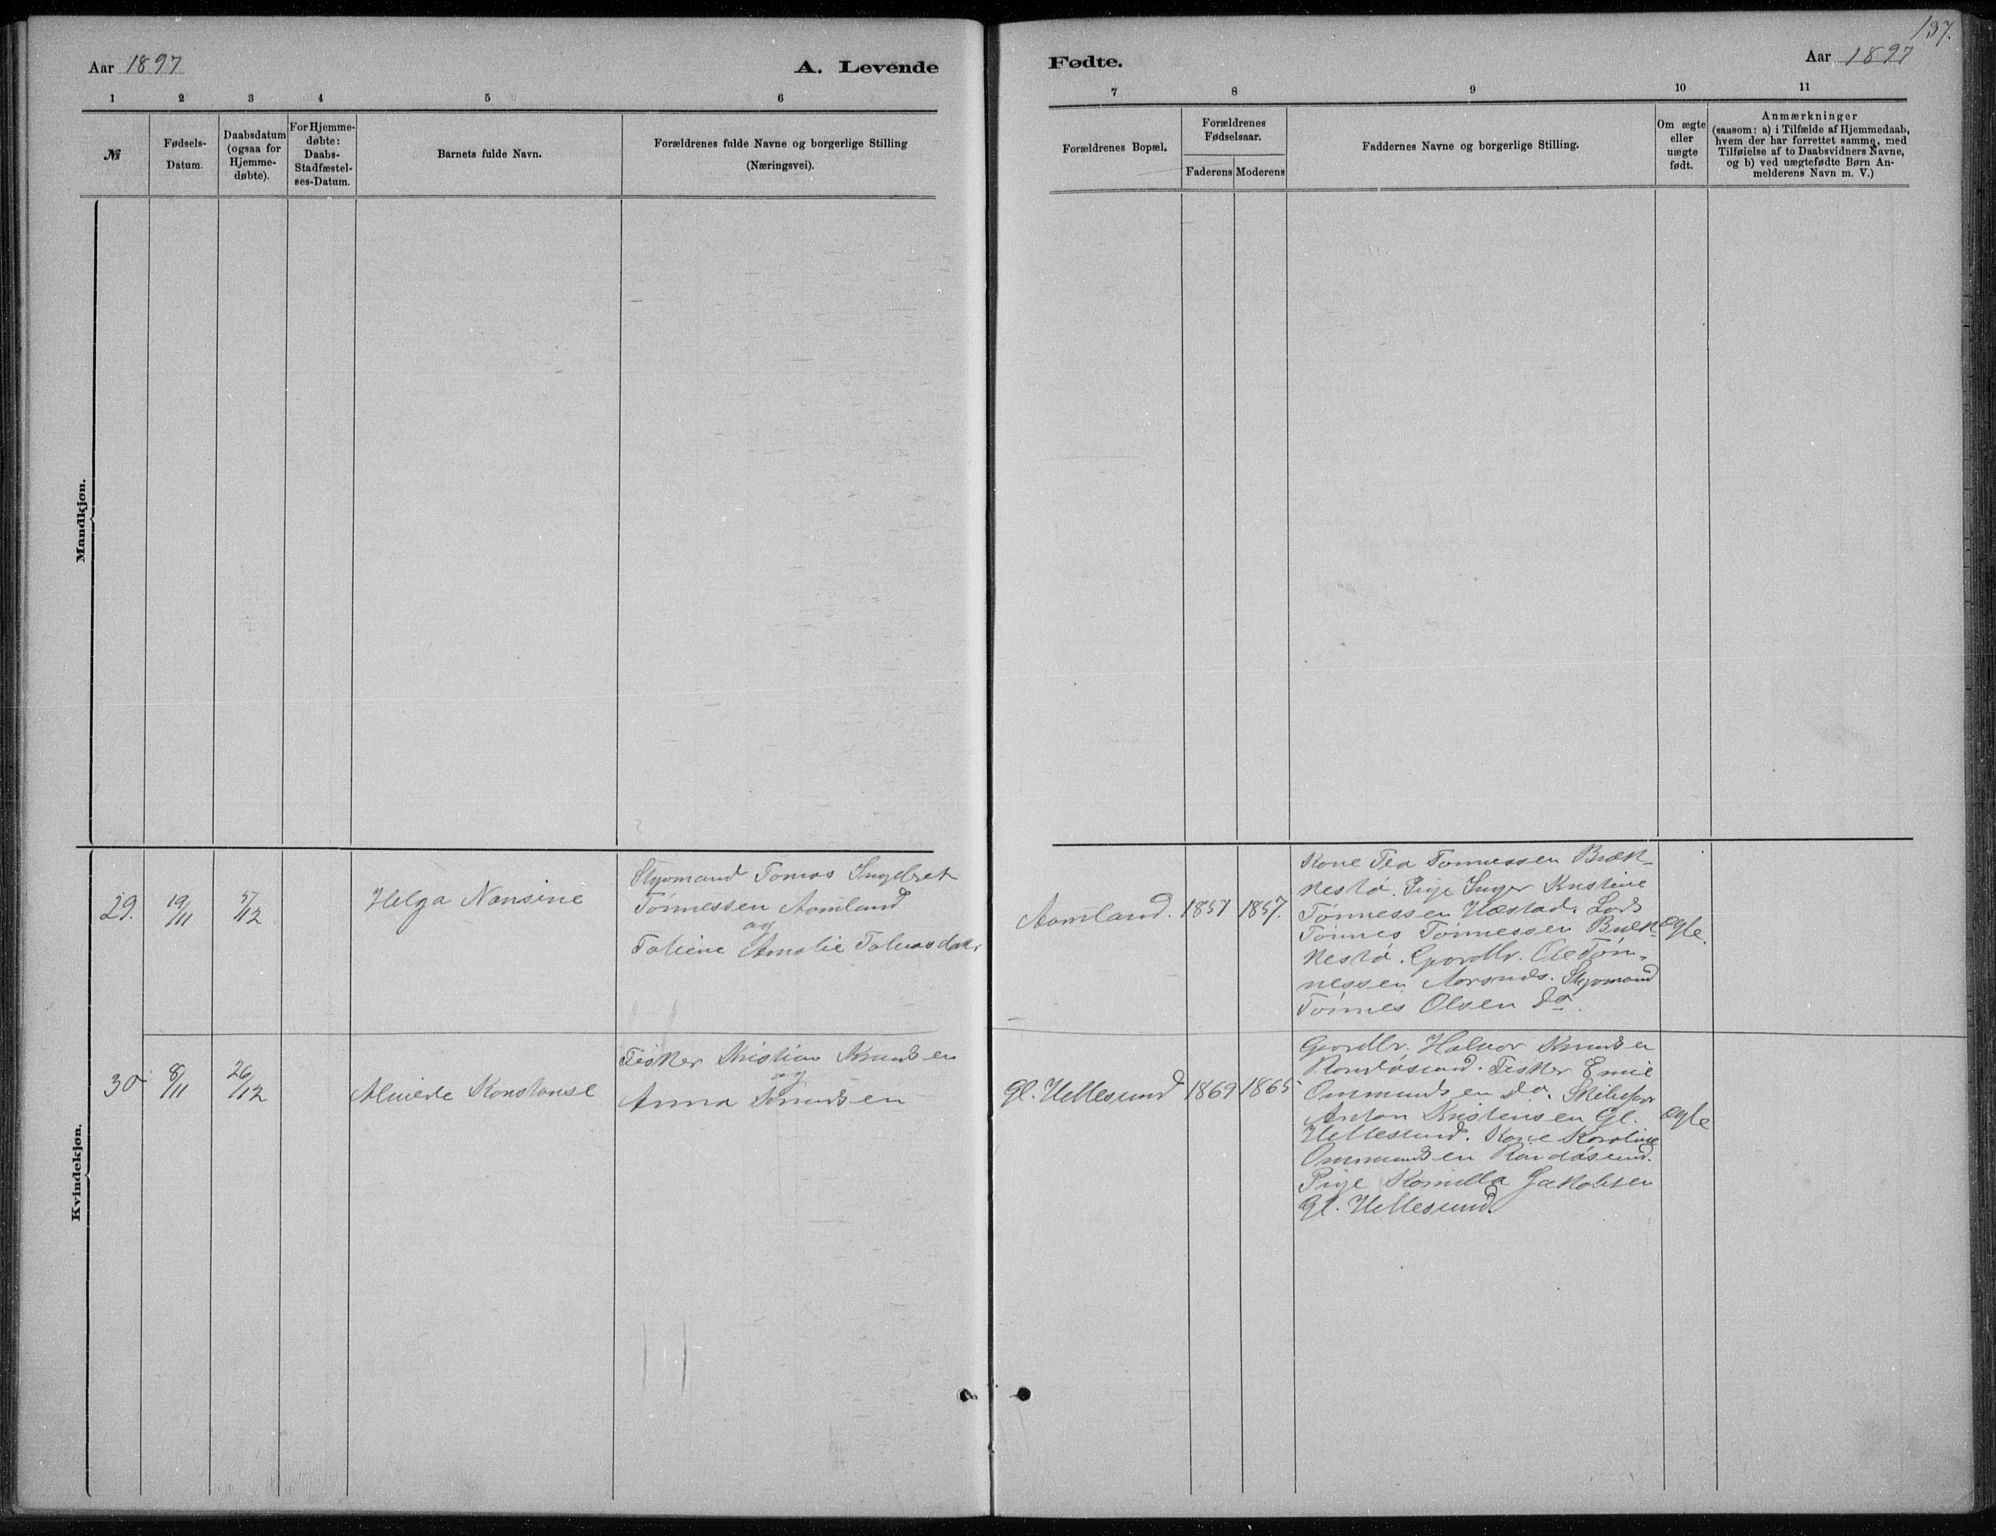 137.
Aar 1897
A. Levende
Fødte.
Aar 1897
1 2 3 4 5 6
7 8 9 10 11
№
Fødsels-
Datum.
Daabsdatum
(ogsaa for
Hjemme-
døbte).
For Hjemme-
døbte:
Daabs-
Stadfæstel-
ses-Datum.
Barnets fulde Navn.
Forældrenes fulde Navne og borgerlige Stilling
(Næringsvei).
Forældrenes Bopæl.
Forældrenes
Fødselsaar.
Faderens Moderens
Faddernes Navne og borgerlige Stilling.
Om ægte
eller
uægte
født.
Anmærkninger
(saasom: a) i Tilfælde af Hjemmedaab,
hvem der har forrettet samme, med
Tilføielse af to Daabsvidners Navne,
og b) ved uægtefødte Børn An-
melderens Navn m. V.)
Mandkjøn.
Kvindekjøn.
29.
19/11
5/12
Helga Nansine
Styrmand Tomas Ingebret
Tönnessen Aamland
og
Tomine Amalie Tobiasdatr
Aamland.
1857
1857.
Kone Tea Tönnessen Bræk-
nestö. Pige Inger Kristine
Tønnessen Hæstad. Lods
Tønnes Tönnessen Bræk-
nestö. Gaardbr. Ole Tøn-
nessen Aarsnes. Styrmand
Tønnes Olsen do.
Ægte.
30
8/11
26/12
Almede Konstanse
Fisker Kristian Knudsen
og
Anna Knudsen
Gl. Hellesund
1869
1865
Gaardbr. Halvor Knudsen
Randösund. Fisker Emil
Ommundsen do. Skibsför
Anton Kristensen Gl.
Hellesund. Kone Karoline
Ommundsen Randøsund.
Pige Kamilla Jakobsen
Gl. Hellesund.
Ægte